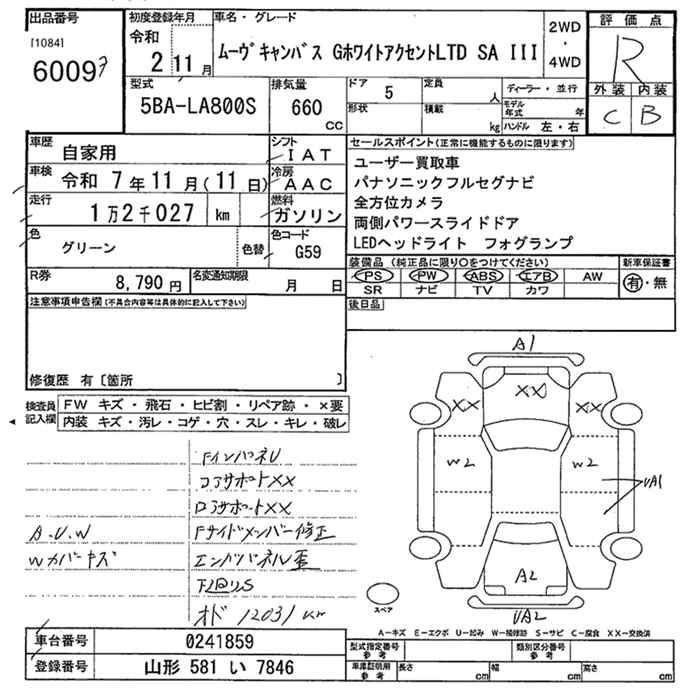 出品番号
[1084]
60097
初度登録年月
令和
2 11月
車名・グレード
ムーヴキャンバス GホワイトアクセントLTD SA III
2WD
・
4WD
評価点
R
外装 内装
C B
型式
5BA-LA800S
排気量
660
CC
ドア
5
形状
定員
人
積載
kg
ディーラー・並行
モデル年式 年
ハンドル 左・右
車歴
自家用
シフト
IAT
車検
令和 7年11月(11日)
冷房
AAC
走行
1万2千027 km
燃料
ガソリン
色
グリーン
色替
色コード
G59
R券
8,790円
名変通知期限
月 日
セールスポイント(正常に機能するものに限ります)
ユーザー買取車
パナソニックフルセグナビ
全方位カメラ
両側パワースライドドア
LEDヘッドライト フォグランプ
装備品(純正品に限り○をつけてください)
PS PW ABS エアB AW
SR ナビ TV カワ
新車保証書
有・無
後日品
注意事項申告欄(不具合内容等は具体的に記入して下さい)
修復歴 有〔箇所 〕
検査員記入欄
FW キズ・飛石・ヒビ割・リペア跡・×要
内装 キズ・汚レ・コゲ・穴・スレ・キレ・破レ
FインパネU
コアサポートXX
ロアサポートXX
A.U.W
Fサイドメンバー修正
Wカバーキズ
エンドパネル歪
オド 12031km
A1
XX
XX
XX
W2
W2
UA1
A2
UA2
スペア
A-キズ E-エクボ U-凹み W-補修跡 S-サビ C-腐食 XX-交換済
車台番号
0241859
登録番号
山形 581 い 7846
型式指定番号
参考
類別区分番号
参考
車庫証明用
参考
長さ
cm
幅
cm
高さ
cm